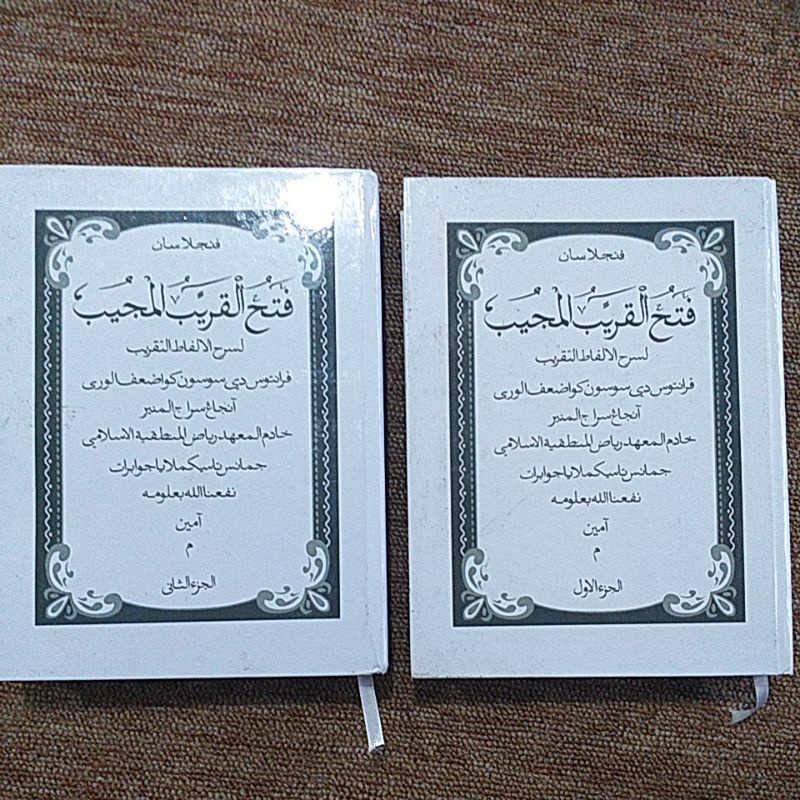 فنجلاسان
فَتْحُ الْقَرِيْبُ الْمُجِيْبُ
لسرح الالفاط التقريب
فرانتوس دي سوسون كو اضعف الورى
آنجاغ سراج المنير
خادم المعهد رياض المنطقية الاسلامي
جمانس تاسيكملايا جوابرات
نفعنا الله بعلومه
آمين
م
الجزء الثانى
فنجلاسان
فَتْحُ الْقَرِيْبُ الْمُجِيْبُ
لسرح الالفاط التقريب
فرانتوس دي سوسون كو اضعف الورى
آنجاغ سراج المنير
خادم المعهد رياض المنطقية الاسلامي
جمانس تاسيكملايا جوابرات
نفعنا الله بعلومه
آمين
م
الجزء الاول